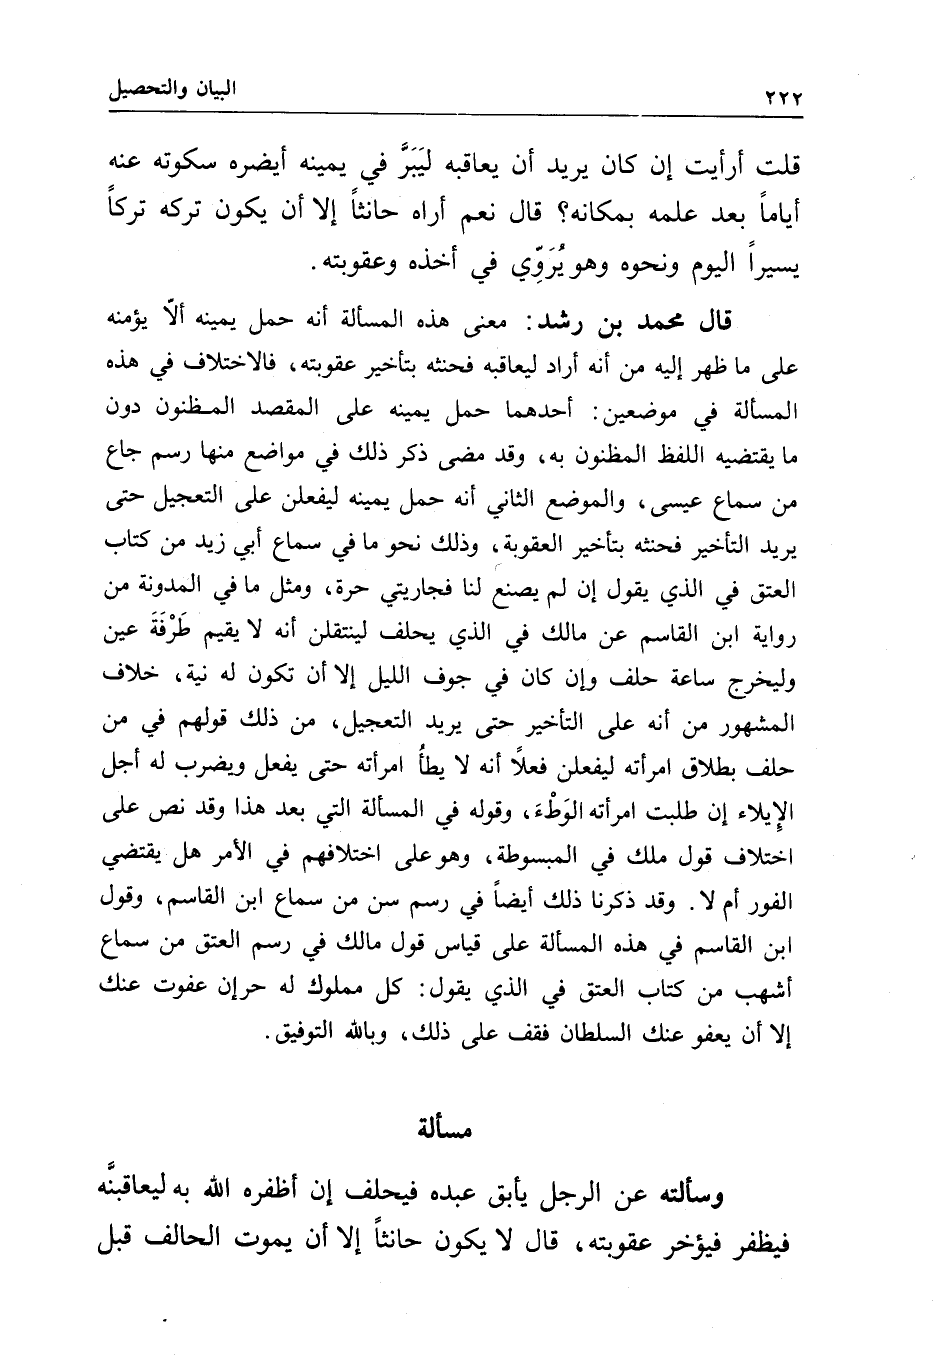 ٢٢٢ البيان والتحصيل
قلت أرأيت إن كان يريد أن يعاقبه ليَبَرَّ في يمينه أيضره سكوته عنه
أياماً بعد علمه بمكانه؟ قال نعم أراه حانثاً إلا أن يكون تركه تركاً
يسيراً اليوم ونحوه وهو يُرَوِّي في أخذه وعقوبته.
قال محمد بن رشد: معنى هذه المسألة أنه حمل يمينه ألاّ يؤمنه
على ما ظهر إليه من أنه أراد ليعاقبه فحنثه بتأخير عقوبته، فالاختلاف في هذه
المسألة في موضعين: أحدهما حمل يمينه على المقصد المظنون دون
ما يقتضيه اللفظ المظنون به، وقد مضى ذكر ذلك في مواضع منها رسم جاع
من سماع عيسى، والموضع الثاني أنه حمل يمينه ليفعلن على التعجيل حتى
يريد التأخير فحنثه بتأخير العقوبة، وذلك نحو ما في سماع أبي زيد من كتاب
العتق في الذي يقول إن لم يصنع لنا فجاريتي حرة، ومثل ما في المدونة من
رواية ابن القاسم عن مالك في الذي يحلف لينتقلن أنه لا يقيم طَرْفَةَ عين
وليخرج ساعة حلف وإن كان في جوف الليل إلا أن تكون له نية، خلاف
المشهور من أنه على التأخير حتى يريد التعجيل، من ذلك قولهم في من
حلف بطلاق امرأته ليفعلن فعلاً أنه لا يطأُ امرأته حتى يفعل ويضرب له أجل
الإِيلاء إن طلبت امرأته الوَطْءَ، وقوله في المسألة التي بعد هذا وقد نص على
اختلاف قول ملك في المبسوطة، وهو على اختلافهم في الأمر هل يقتضي
الفور أم لا. وقد ذكرنا ذلك أيضاً في رسم سن من سماع ابن القاسم، وقول
ابن القاسم في هذه المسألة على قياس قول مالك في رسم العتق من سماع
أشهب من كتاب العتق في الذي يقول: كل مملوك له حر إن عفوت عنك
إلا أن يعفو عنك السلطان فقف على ذلك، وبالله التوفيق.
مسألة
وسألته عن الرجل يأبق عبده فيحلف إن أظفره الله به ليعاقبنَّه
فيظفر فيؤخر عقوبته، قال لا يكون حانثاً إلا أن يموت الحالف قبل